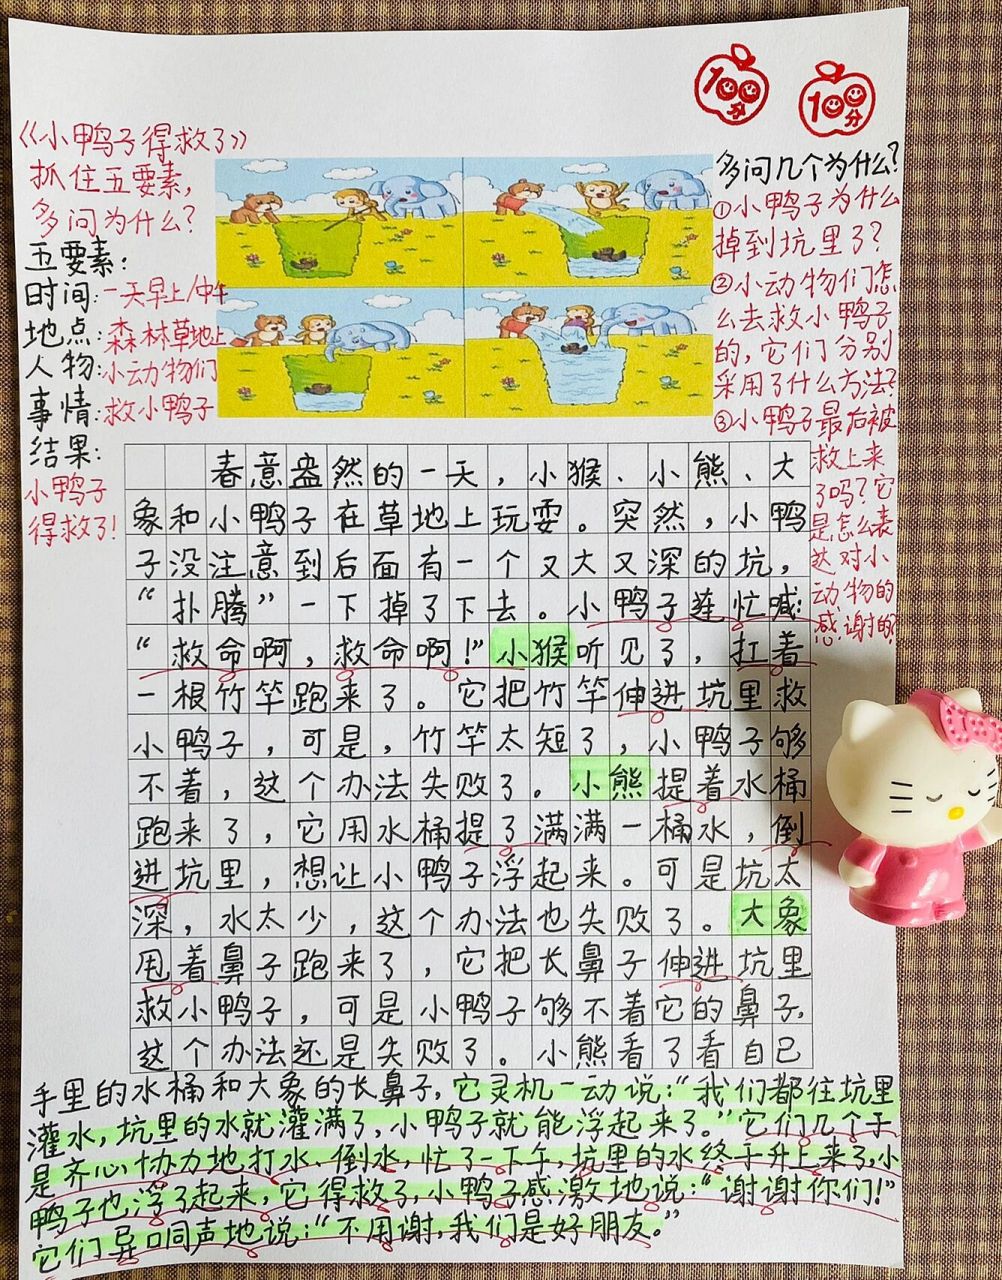 100分
100分
《小鸭子得救了》
抓住五要素,
多问为什么?
五要素:
时间:一天早上/中午
地点:森林草地上
人物:小动物们
事情:救小鸭子
结果:
小鸭子
得救了!
多问几个为什么?
①小鸭子为什么
掉到坑里了?
②小动物们怎
么去救小鸭子
的,它们分别
采用了什么方法?
③小鸭子最后被
救上来
了吗?它
是怎么表
达对小
动物的
感谢的?
春意盎然的一天,小猴、小熊、大
象和小鸭子在草地上玩耍。突然,小鸭
子没注意到后面有一个又大又深的坑,
“扑腾”一下掉了下去。小鸭子连忙喊:
“救命啊,救命啊!”小猴听见了,扛着
一根竹竿跑来了。它把竹竿伸进坑里救
小鸭子,可是,竹竿太短了,小鸭子够
不着,这个办法失败了。小熊提着水桶
跑来了,它用水桶提了满满一桶水,倒
进坑里,想让小鸭子浮起来。可是坑太
深,水太少,这个办法也失败了。大象
甩着鼻子跑来了,它把长鼻子伸进坑里
救小鸭子,可是小鸭子够不着它的鼻子,
这个办法还是失败了。小熊看了看自己
手里的水桶和大象的长鼻子,它灵机一动说:“我们都往坑里
灌水,坑里的水就灌满了,小鸭子就能浮起来了。”它们几个于
是齐心协力地打水、倒水,忙了一下午,坑里的水终于升上来了,小
鸭子也浮了起来,它得救了,小鸭子感激地说:“谢谢你们!”
它们异口同声地说:“不用谢,我们是好朋友。”